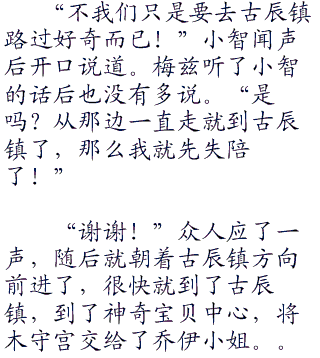 “不我们只是要去古辰镇
路过好奇而已！”小智闻声
后开口说道。梅兹听了小智
的话后也没有多说。“是
吗？从那边一直走就到古辰
镇了，那么我就先失陪
了！”
“谢谢！”众人应了一
声，随后就朝着古辰镇方向
前进了，很快就到了古辰
镇，到了神奇宝贝中心，将
木守宫交给了乔伊小姐。。